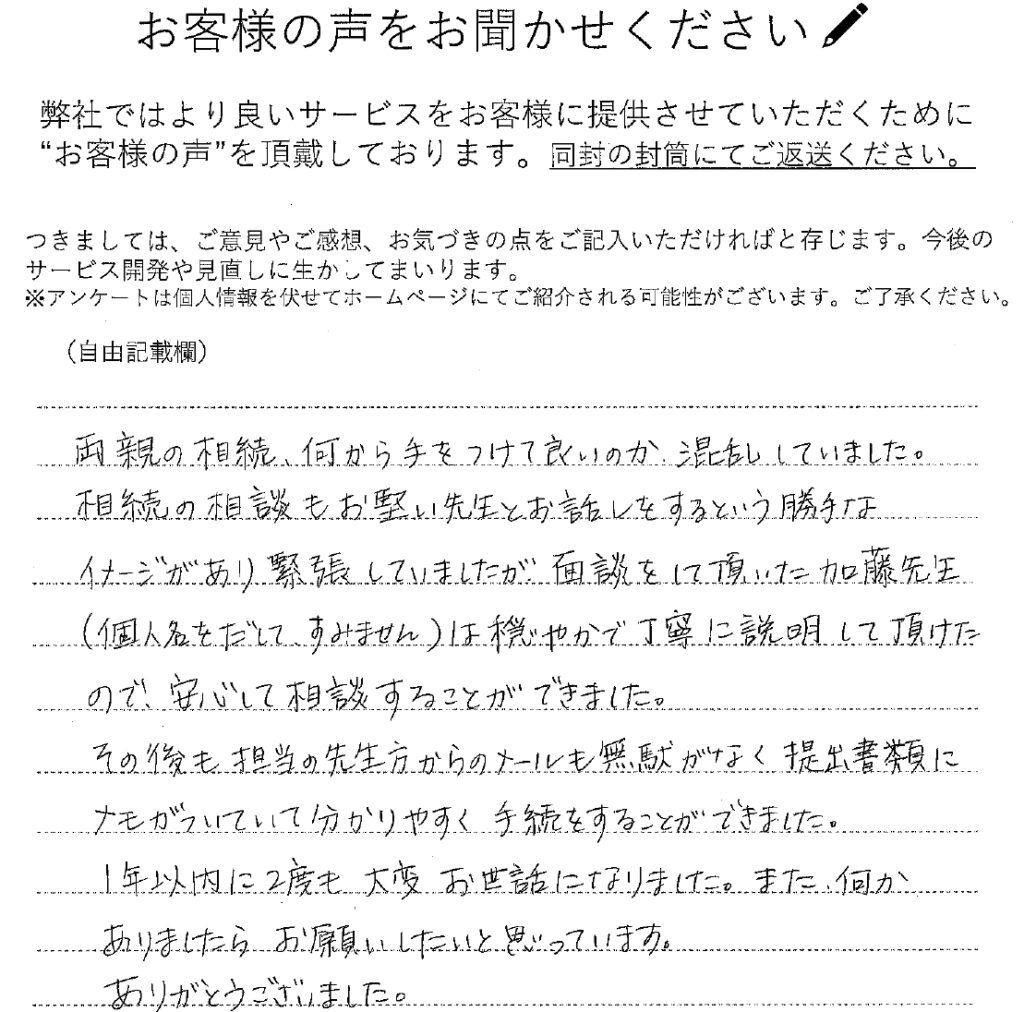 お客様の声をお聞かせください
弊社ではより良いサービスをお客様に提供させていただくために
“お客様の声”を頂戴しております。同封の封筒にてご返送ください。
つきましては、ご意見やご感想、お気づきの点をご記入いただければと存じます。今後の
サービス開発や見直しに生かしてまいります。
※アンケートは個人情報を伏せてホームページにてご紹介される可能性がございます。ご了承ください。
（自由記載欄）
両親の相続、何から手をつけて良いのか、混乱していました。
相続の相談もお堅い先生とお話しをするという勝手な
イメージがあり緊張していましたが、面談をして頂いた加藤先生
(個人名をだして、すみません)は穏やかで丁寧に説明して頂けた
ので、安心して相談することができました。
その後も担当の先生方からのメールも無駄がなく提出書類に
メモがついていて分かりやすく手続をすることができました。
1年以内に2度も大変お世話になりました。また、何か
ありましたらお願いしたいと思っています。
ありがとうございました。